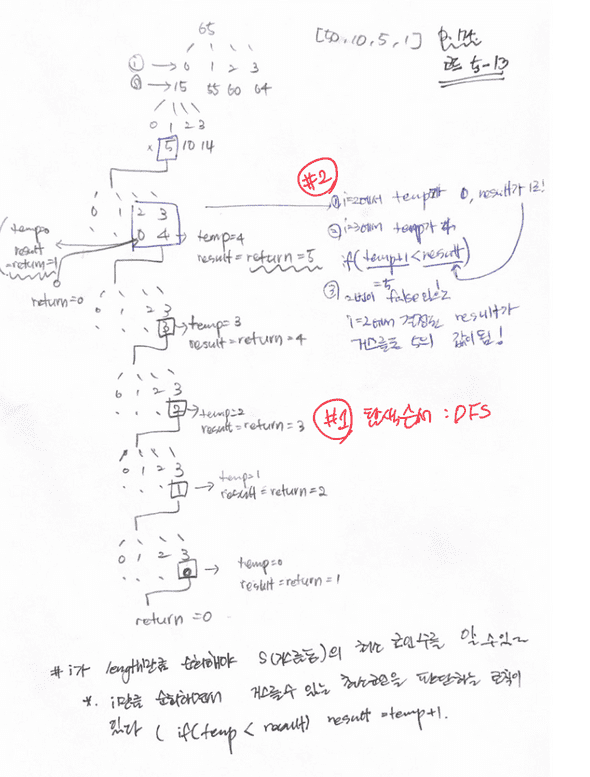 65
[50, 10, 5, 1] p.174
코드 5-13
ⓘ → 0 1 2 3
ⓢ → 15 55 60 64
0 1 2 3
× 5 10 14
#2
0 1 2 3
0 4
temp=0
result
=return=1
return=0
temp=4
result = return = 5
① i=2에서 temp가 0, result가 1로!
② i=3에서 temp가 4
if(temp+1<result)
=5
③ 2번이 false 되므로
i=2에서 결정된 result가
거스름돈 5의 값이 됨!
2 3
3 → temp=3
result=return=4
0 1 2 3
2 → temp=2
result=return=3
#1 탐색순서 : DFS
0 1 2 3
1 → temp=1
result=return=2
0 1 2 3
0 → temp=0
result=return=1
return=0
# i가 length만큼 순회해야 S(거스름돈)의 최소 코인수를 알 수 있
* i만큼 순회하면서 거스를 수 있는 최소코인을 판단하는 로직이
있다 ( if(temp < result) result =temp+1.